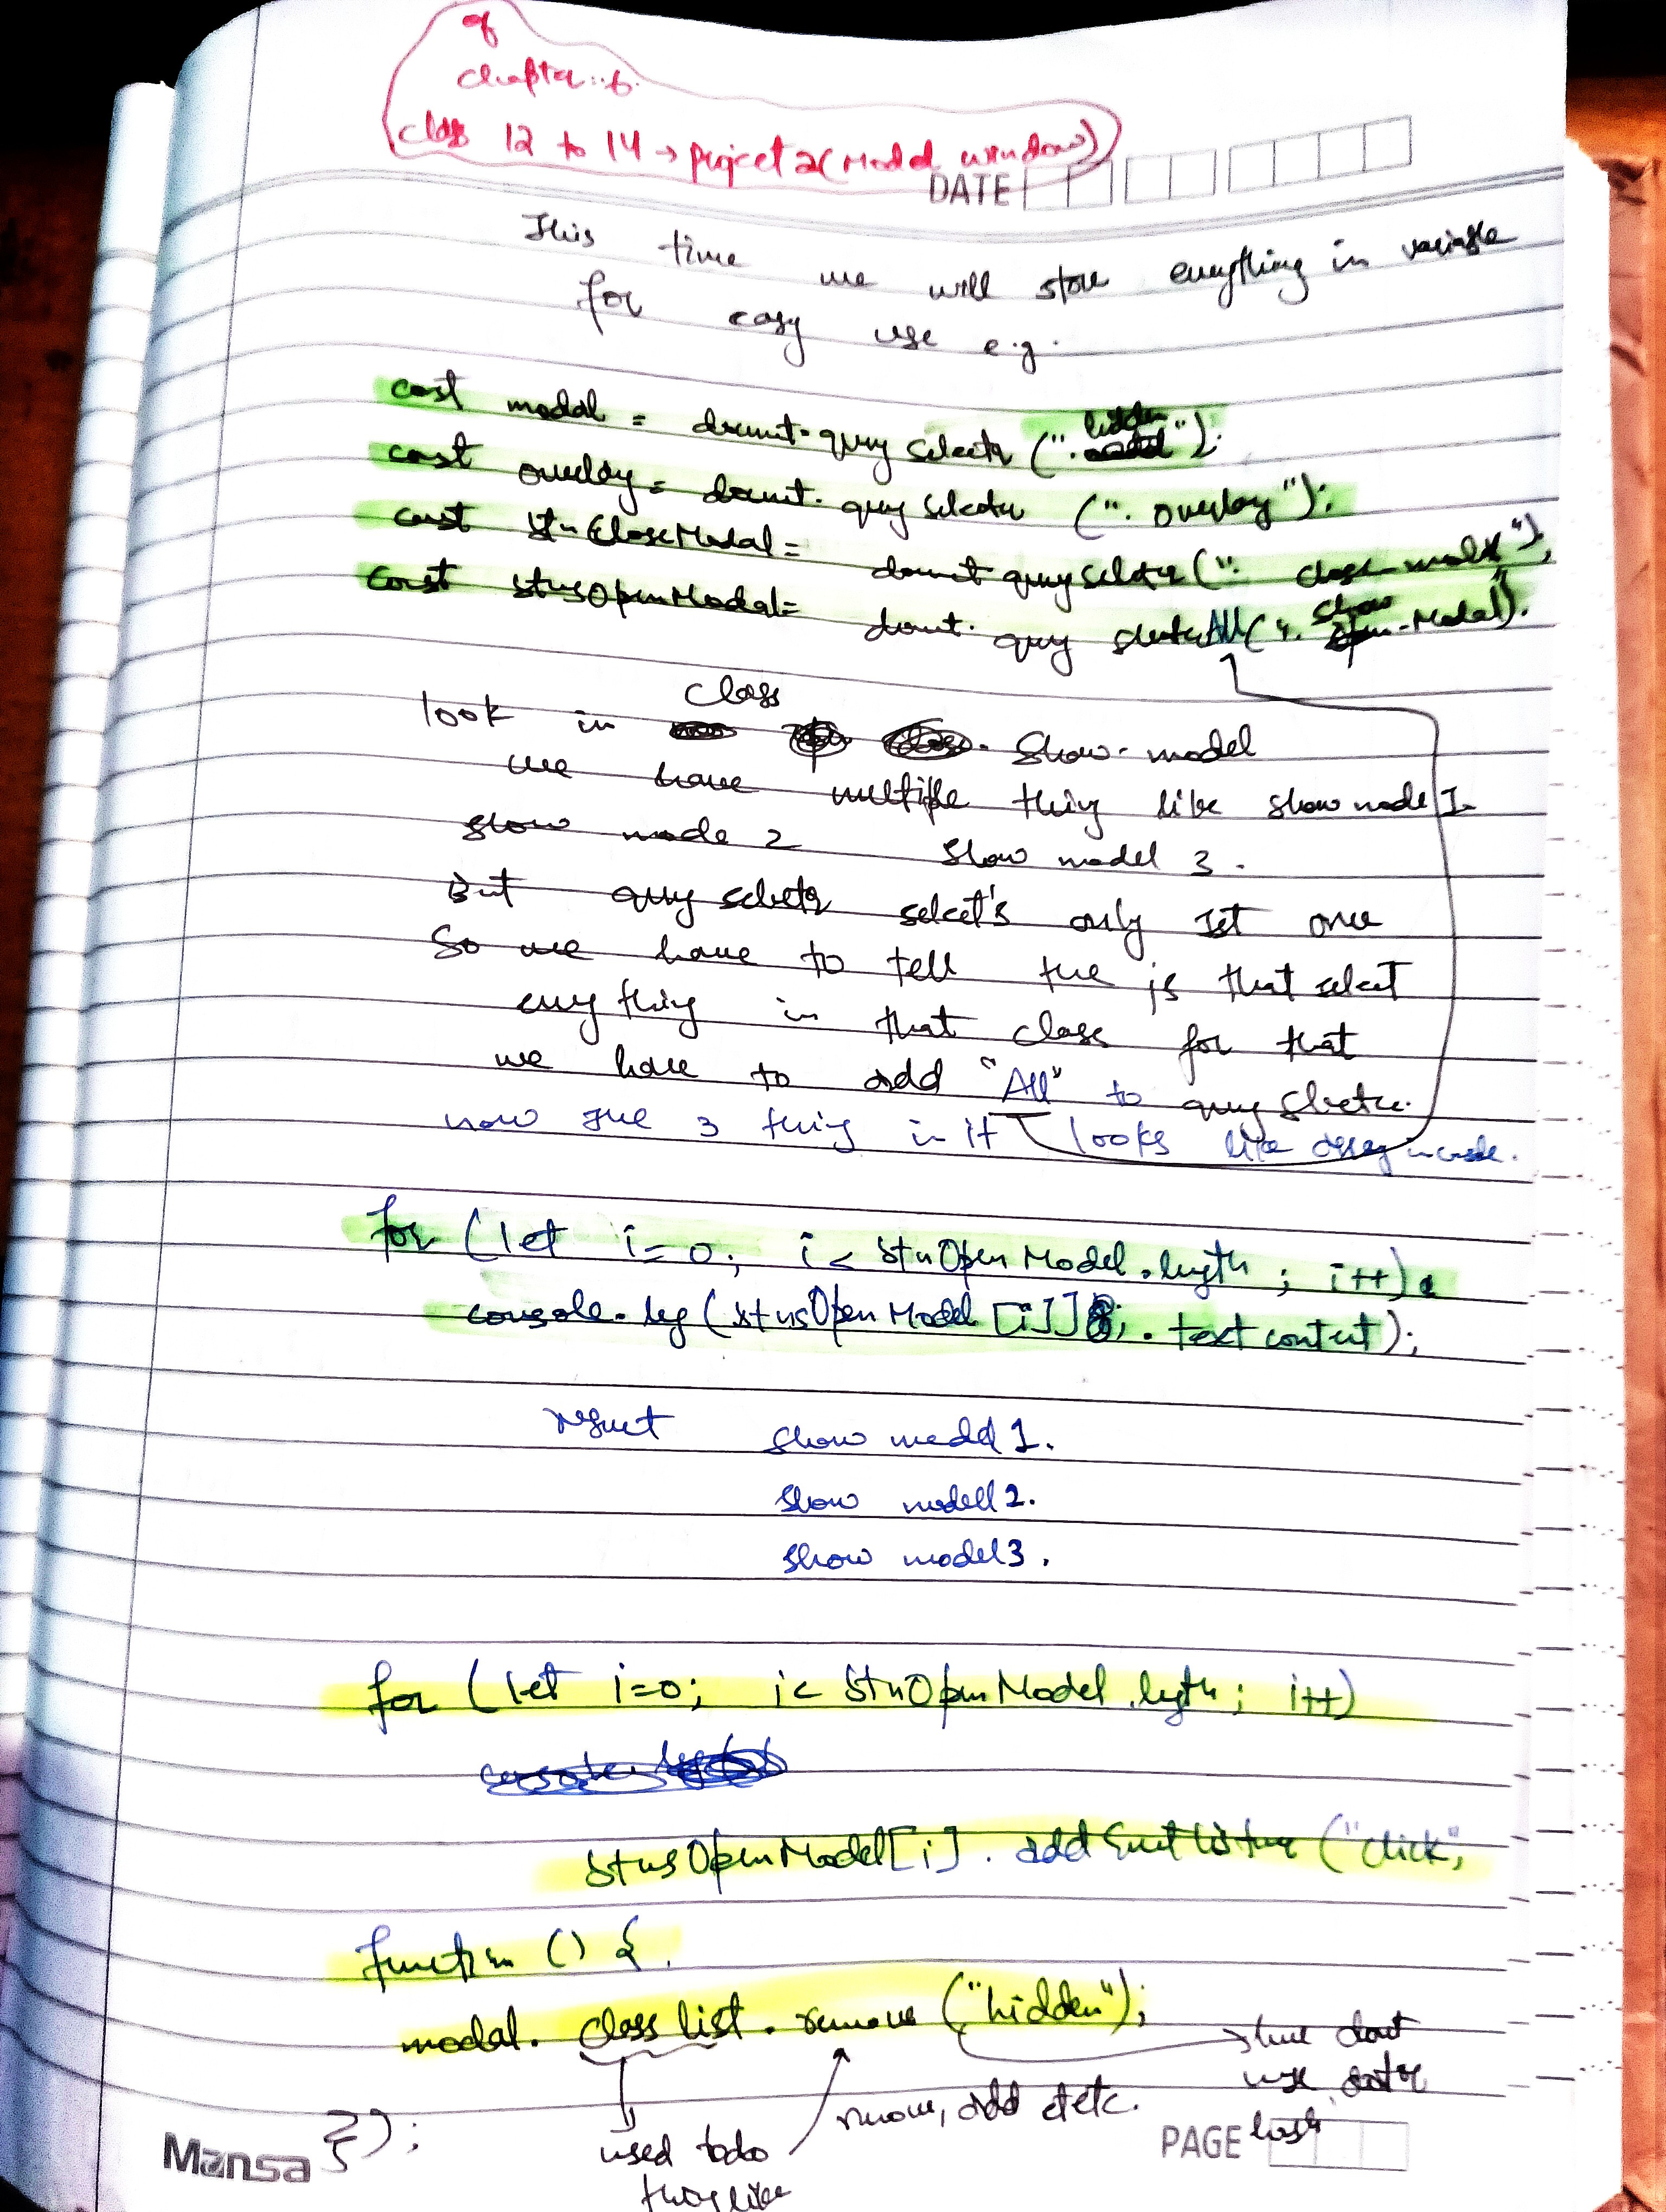 of
chapter :: 6.
class 12 to 14 → project 2 (Modal window)
DATE
This time we will store everything in variable
for easy use e.g.
const modal = document.query selector (". hidden");
const overlay = document. query selector (". overlay");
const btnCloseModal = document query selector (". close-modal");
const btnsOpenModal = document. query selectorAll (". show-Modal").
look in class show-model
we have multiple thing like show model 1
show mode 2 show model 3.
But query selector select's only 1st one
So we have to tell the js that select
everything in that class for that
we have to add "All" to query selector.
now the 3 thing in it looks like array in code.
for (let i=0; i< btnOpenModel.length; i++)
console.log (btnsOpenModel [i] . text content);
result show model 1.
show modell 2.
show model 3.
for (let i=0; i< btnOpenModel.length; i++)
btnsOpenModel[i]. addEventListner ("click",
function () {
modal. class list. remove ("hidden");
here dont
use dot or
hash
remove, add etc.
});
used todo
things like
Mansa
PAGE